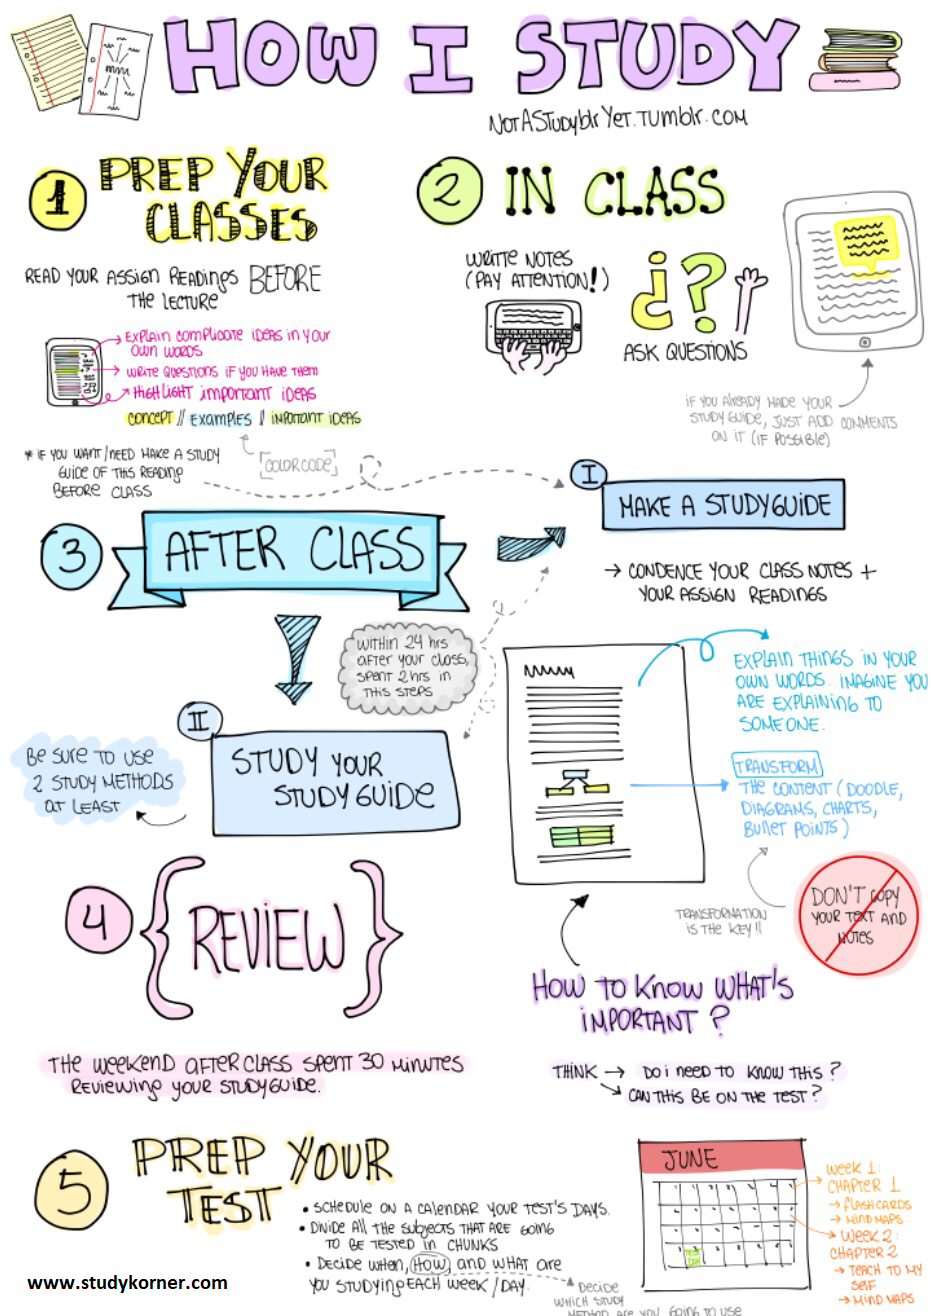 HOW I STUDY
NOTASTUDYblrYET.TUMBLR.COM
1 PREP YOUR
CLASSES
READ YOUR ASSIGN READINGS BEFORE
THE LECTURE
EXPLAIN COMPLICATE IDEAS IN YOUR
OWN WORDS
WRITE QUESTIONS IF YOU HAVE THEM
HIGHLIGHT IMPORTANT IDEAS
CONCEPT // EXAMPLES // IMPORTANT IDEAS
[COLOR CODE]
* IF YOU WANT/NEED MAKE A STUDY
GUIDE OF THIS READING
BEFORE CLASS
2 IN CLASS
WRITE NOTES
(PAY ATTENTION!)
¿?
ASK QUESTIONS
IF YOU ALREADY MADE YOUR
STUDY GUIDE, JUST ADD COMMENTS
ON IT (IF POSSIBLE)
3 AFTER CLASS
I
MAKE A STUDYGUIDE
→ CONDENCE YOUR CLASS NOTES +
YOUR ASSIGN READINGS
WITHIN 24 hrs
AFTER YOUR CLASS,
SPENT 2 hrs IN
THIS STEPS
EXPLAIN THINGS IN YOUR
OWN WORDS. IMAGINE YOU
ARE EXPLAINING TO
SOMEONE.
TRANSFORM
THE CONTENT (DOODLE,
DIAGRAMS, CHARTS,
BULLET POINTS)
TRANSFORMATION
IS THE KEY!!
DON'T COPY
YOUR TEXT AND
NOTES
II
STUDY YOUR
STUDYGUIDE
BE SURE TO USE
2 STUDY METHODS
AT LEAST
HOW TO KNOW WHAT'S
IMPORTANT?
THINK → DO I NEED TO KNOW THIS?
→ CAN THIS BE ON THE TEST?
4 {REVIEW}
THE WEEKEND AFTER CLASS SPENT 30 MINUTES
REVIEWING YOUR STUDYGUIDE.
5 PREP YOUR
TEST
• SCHEDULE ON A CALENDAR YOUR TEST'S DAYS.
• DIVIDE ALL THE SUBJECTS THAT ARE GOING
TO BE TESTED IN CHUNKS
• DECIDE WHEN, HOW AND WHAT ARE
YOU STUDYING EACH WEEK/DAY.
DECIDE
WHICH STUDY
METHOD ARE YOU GOING TO USE
JUNE
TEST
DAY
WEEK 1:
CHAPTER 1
→ FLASHCARDS
→ MIND MAPS
WEEK 2:
CHAPTER 2
→ TEACH TO MY
SELF
→ MIND MAPS
www.studykorner.com